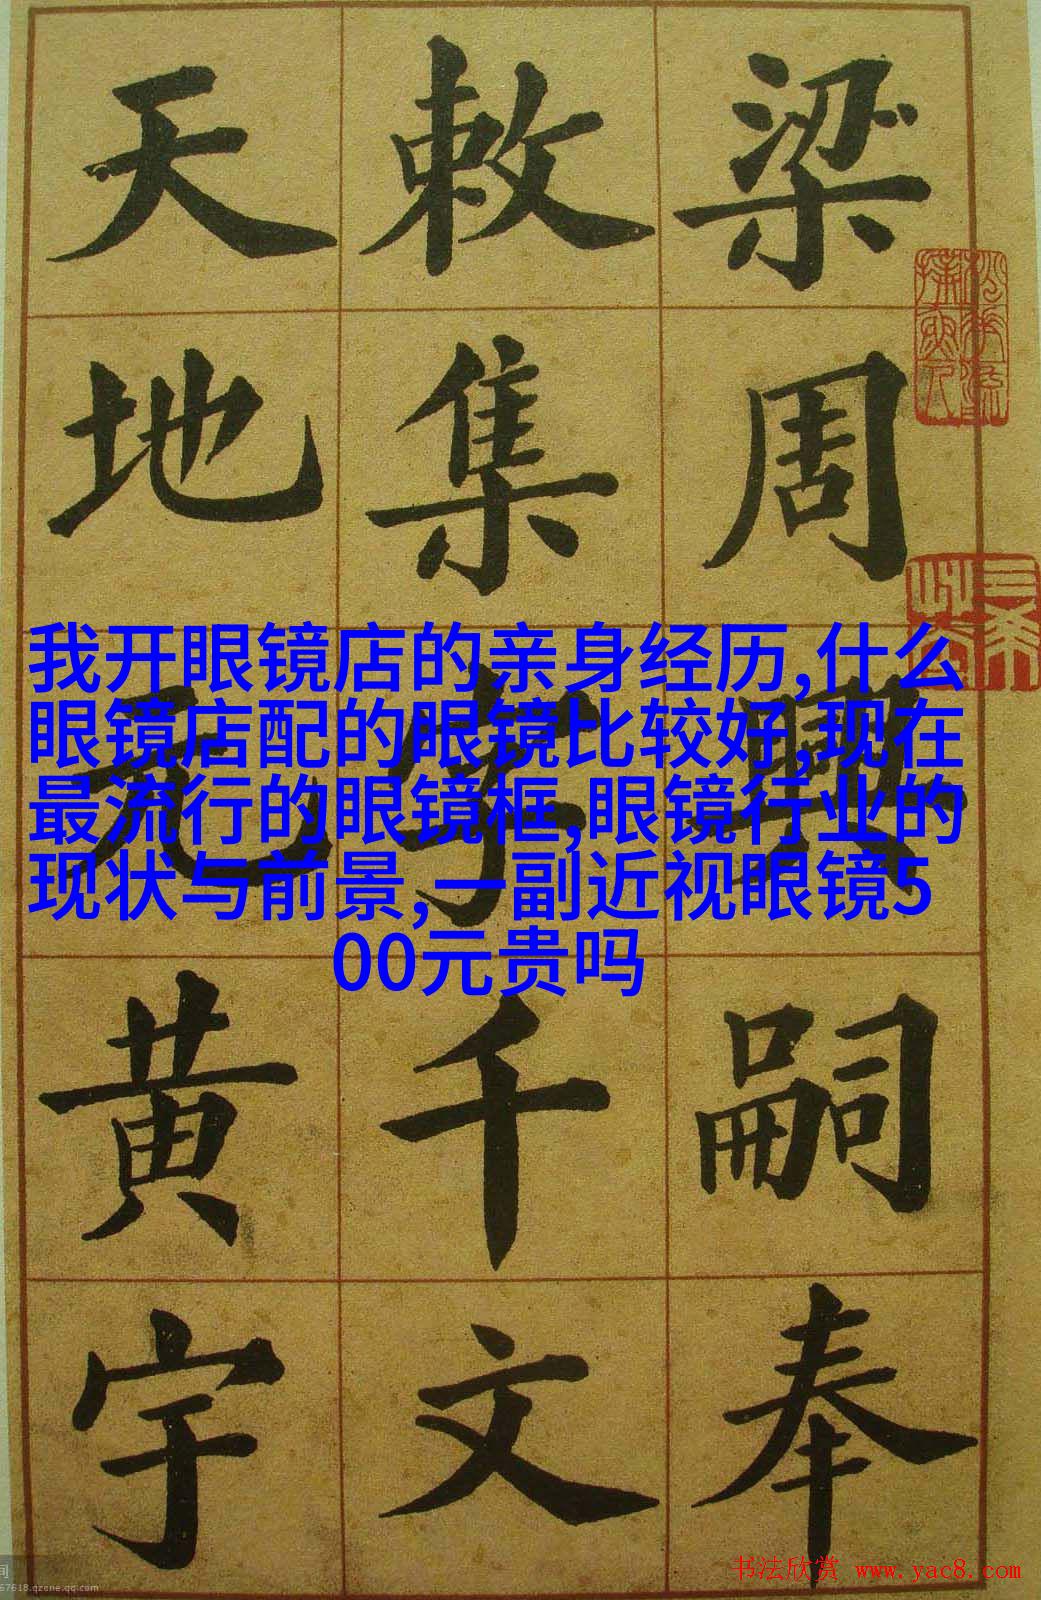 梁周興嗣奉
敕集字千文
天地元黄宇
我开眼镜店的亲身经历,什么
眼镜店配的眼镜比较好,现在
最流行的眼镜框,眼镜行业的
现状与前景,一副近视眼镜5
00元贵吗
书法欣赏 www.yac8.com
间
67618.qzone.qq.com